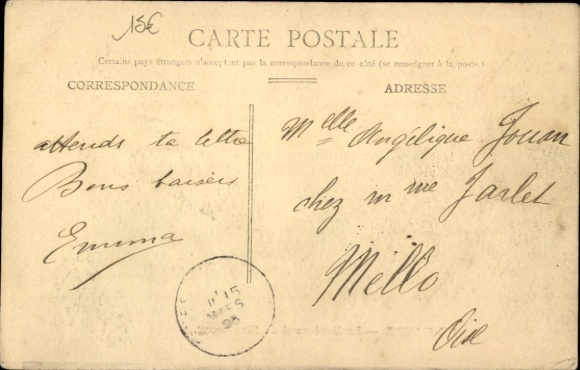 15€
CARTE POSTALE
Certains pays étrangers n'acceptent pas la correspondance de ce côté (se renseigner à la poste.)
CORRESPONDANCE
ADRESSE
attends ta lettre
Bons baisers
Emma
Melle Angélique Jouan
chez mme Jarlet
Mello
Oise
15